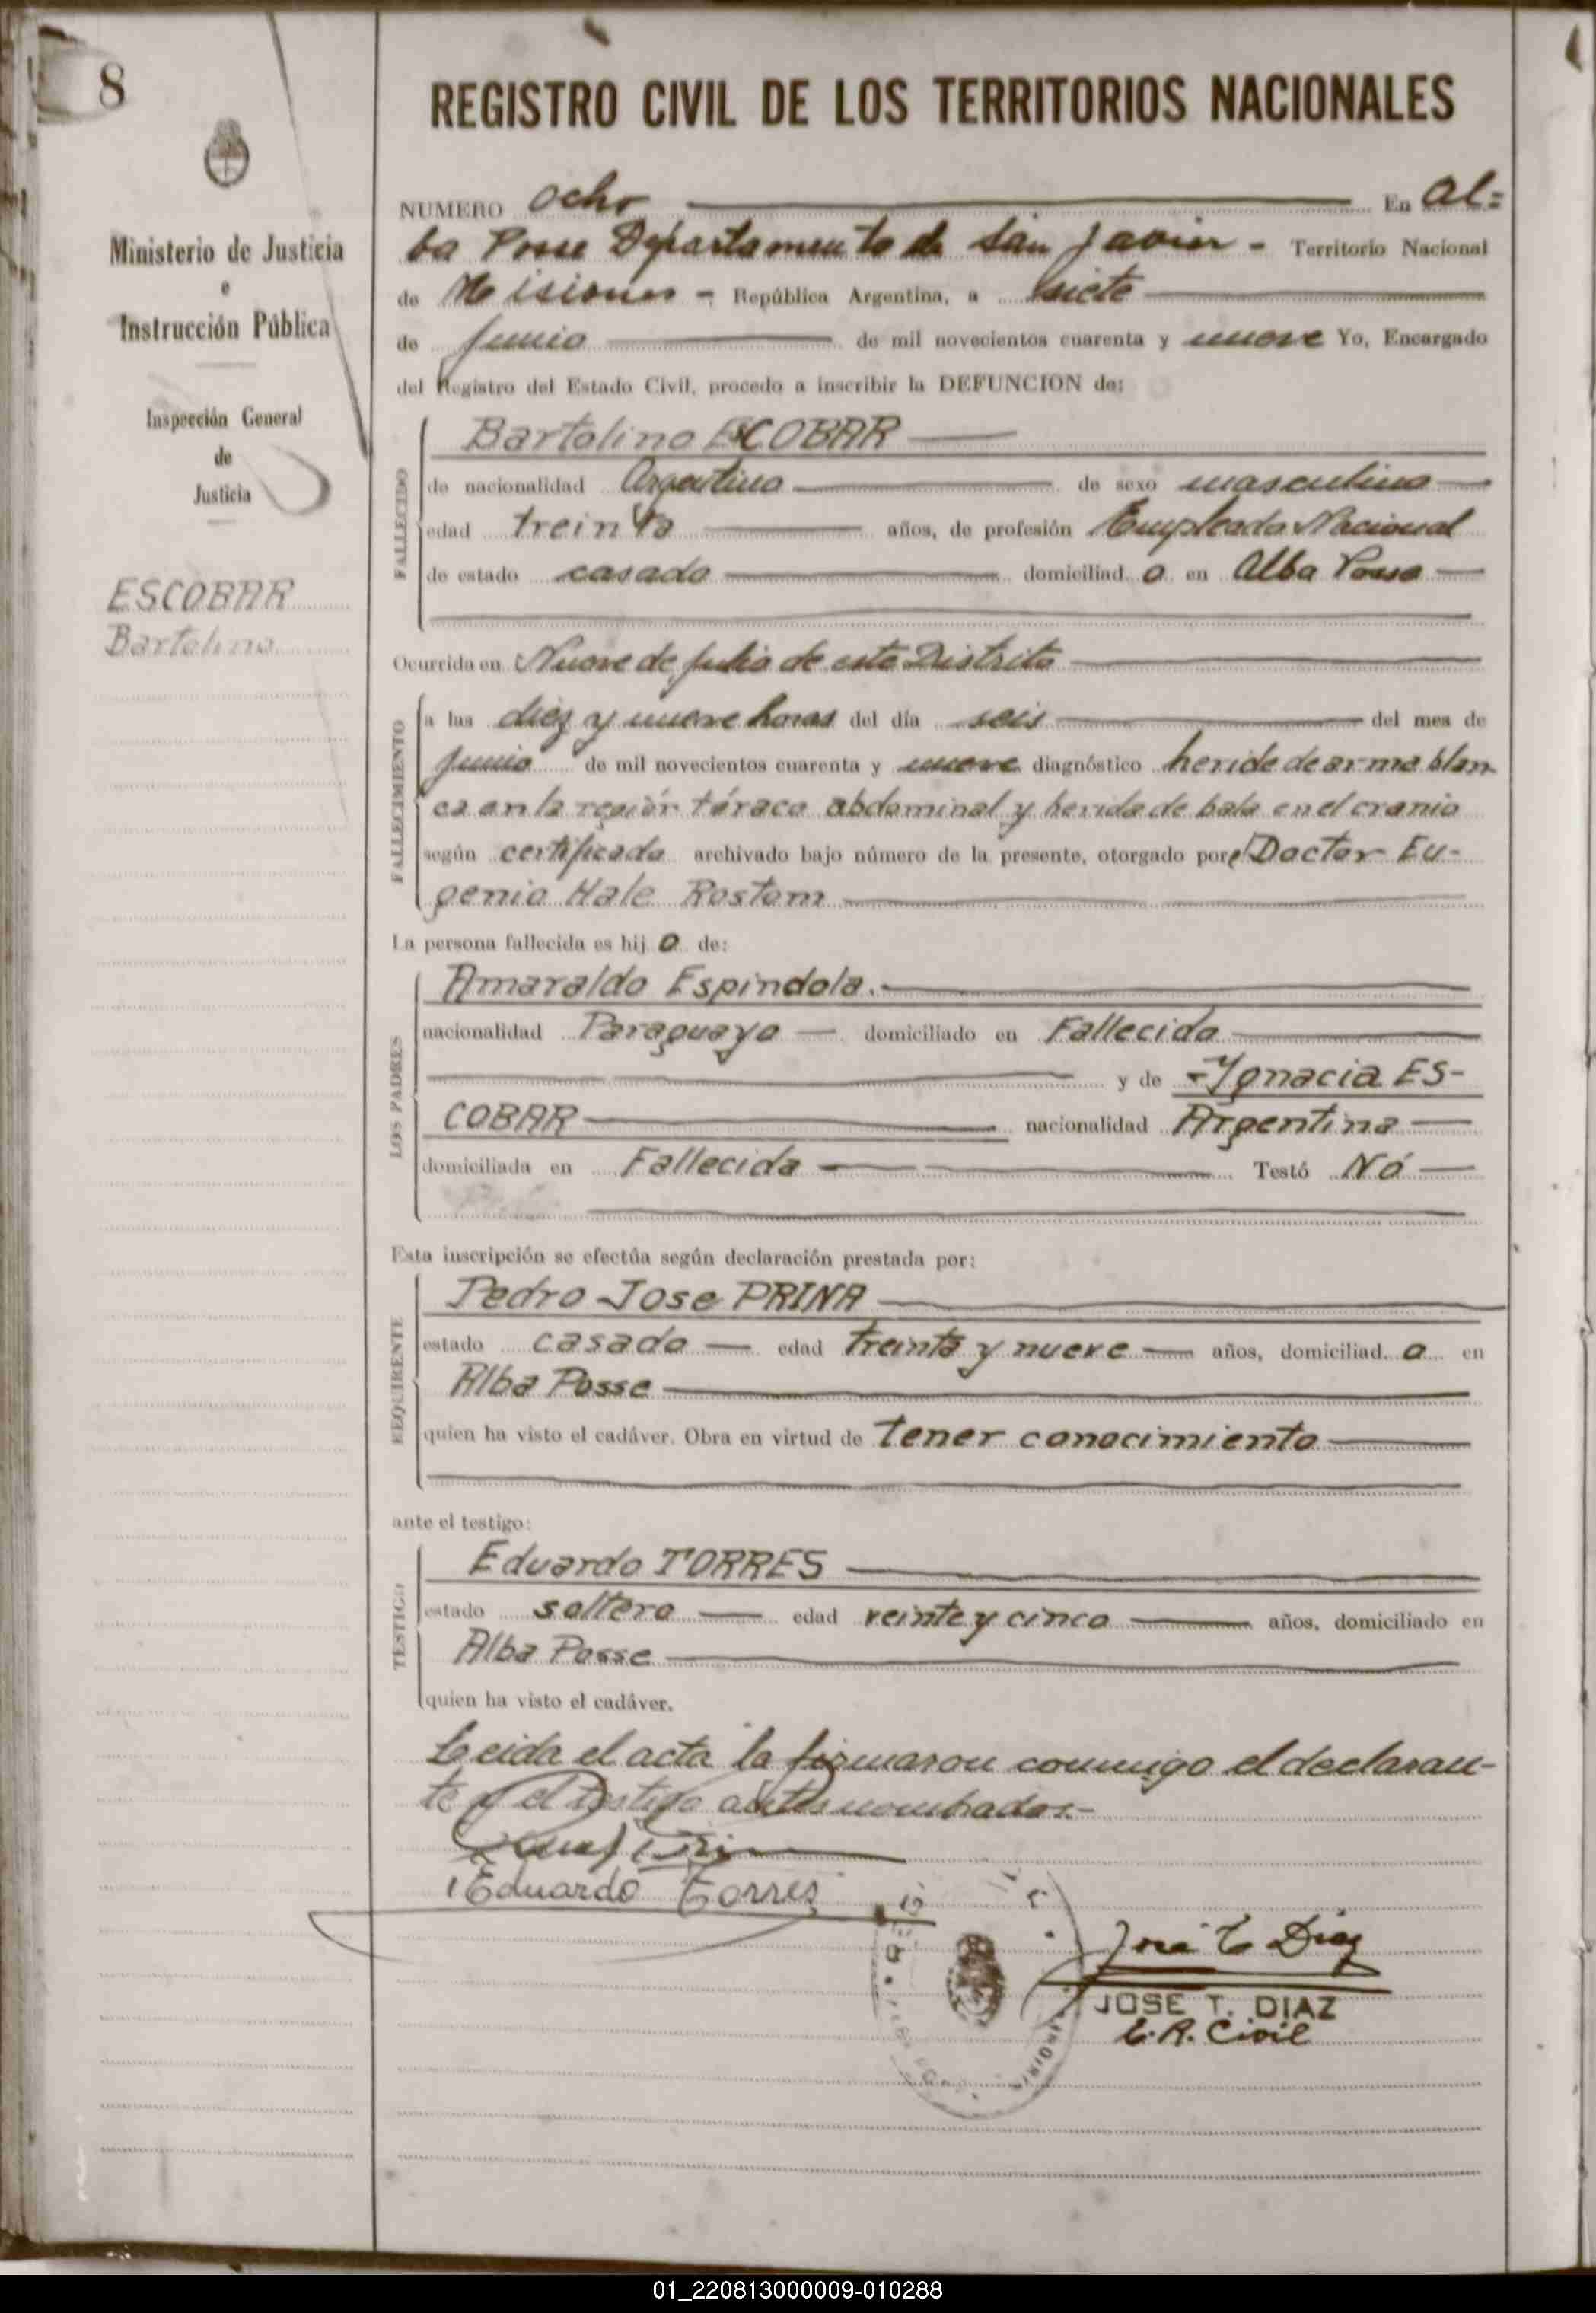 8
REGISTRO CIVIL DE LOS TERRITORIOS NACIONALES
Ministerio de Justicia
e
Instrucción Pública
Inspección General
de
Justicia
ESCOBAR
Bartolino
NUMERO ocho En Al=
ba Posse Departamento de San Javier - Territorio Nacional
de Misiones - República Argentina, a siete
de Junio de mil novecientos cuarenta y nueve Yo, Encargado
del Registro del Estado Civil, procedo a inscribir la DEFUNCION de:
FALLECIDO
Bartolino ESCOBAR
de nacionalidad Argentino de sexo masculino
edad treinta años, de profesión Empleado Nacional
de estado casado domiciliad o en Alba Posse
Ocurrida en Nueve de Julio de este Distrito
FALLECIMIENTO
a las diez y nueve horas del día seis del mes de
Junio de mil novecientos cuarenta y nueve diagnóstico heride de arma blan
ca en la región tóraco abdominal y herida de bala en el cranio
según certificado archivado bajo número de la presente, otorgado por el Doctor Eu-
genio Hale Rostam
La persona fallecida es hij o de:
LOS PADRES
Amaraldo Espindola.
nacionalidad Paraguayo domiciliado en Fallecido
y de Ygnacia ES-
COBAR nacionalidad Argentina
domiciliada en Fallecida Testó Nó
Esta inscripción se efectúa según declaración prestada por:
REQUIRENTE
Pedro Jose PRINA
estado casado edad treinta y nueve años, domiciliad o en
Alba Posse
quien ha visto el cadáver. Obra en virtud de tener conocimiento
ante el testigo:
TESTIGO
Eduardo TORRES
estado soltero edad veinte y cinco años, domiciliado en
Alba Posse
quien ha visto el cadáver.
Leida el acta la firmaron conmigo el declaran-
te y el testigo antes nombrados.-
Eduardo Torres
José T Diaz
JOSE T. DIAZ
E. R. Civil
01_220813000009-010288